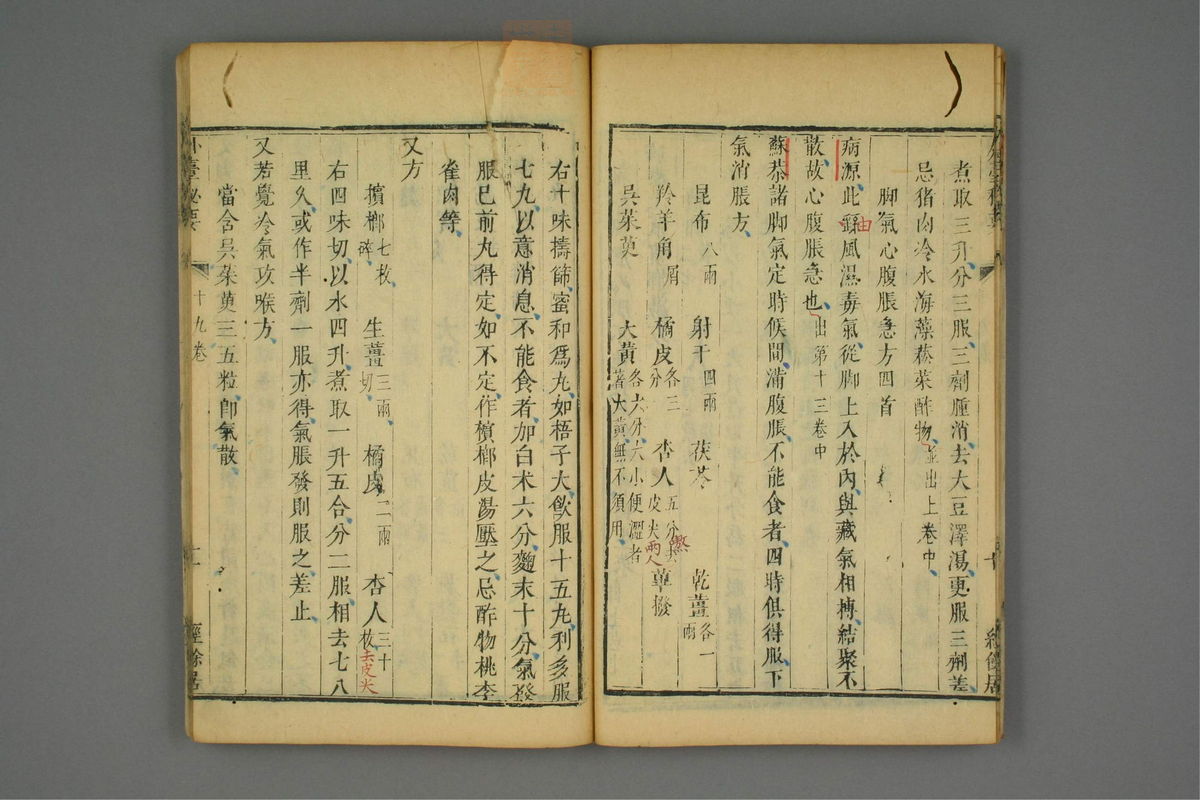 煮取三升分三服三劑腫消去大豆澤湯更服三劑差
忌猪肉冷水海藻菘菜酢物並出上卷中
脚氣心腹脹急方四首
病源此繇由風濕毒氣從脚上入於內與藏氣相搏結聚不
散故心腹脹急也出第十三卷中
蘇恭諸脚氣定時候間滿腹脹不能食者四時俱得服下
氣消脹方
昆布八兩 射干四兩 茯苓 乾薑各一兩
羚羊角屑 橘皮各三分 杏人五分去皮尖兩人熬 蓽撥
吳茱萸 大黃各六分六小便澀者著大黃無不須用
右十味擣篩蜜和爲丸如梧子大飲服十五丸利多服
七丸以意消息不能食者加白朮六分麴末十分氣發
服已前丸得定如不定作檳榔皮湯壓之忌酢物桃李
雀肉等
又方
檳榔七枚碎 生薑三兩切 橘皮二兩 杏人三十枚去皮尖
右四味切以水四升煮取一升五合分二服相去七八
里久或作半劑一服亦得氣脹發則服之差止
又若覺冷氣攻喉方
當含吳茱萸三五粒卽氣散
外臺祕要 十九卷 十一 經餘居